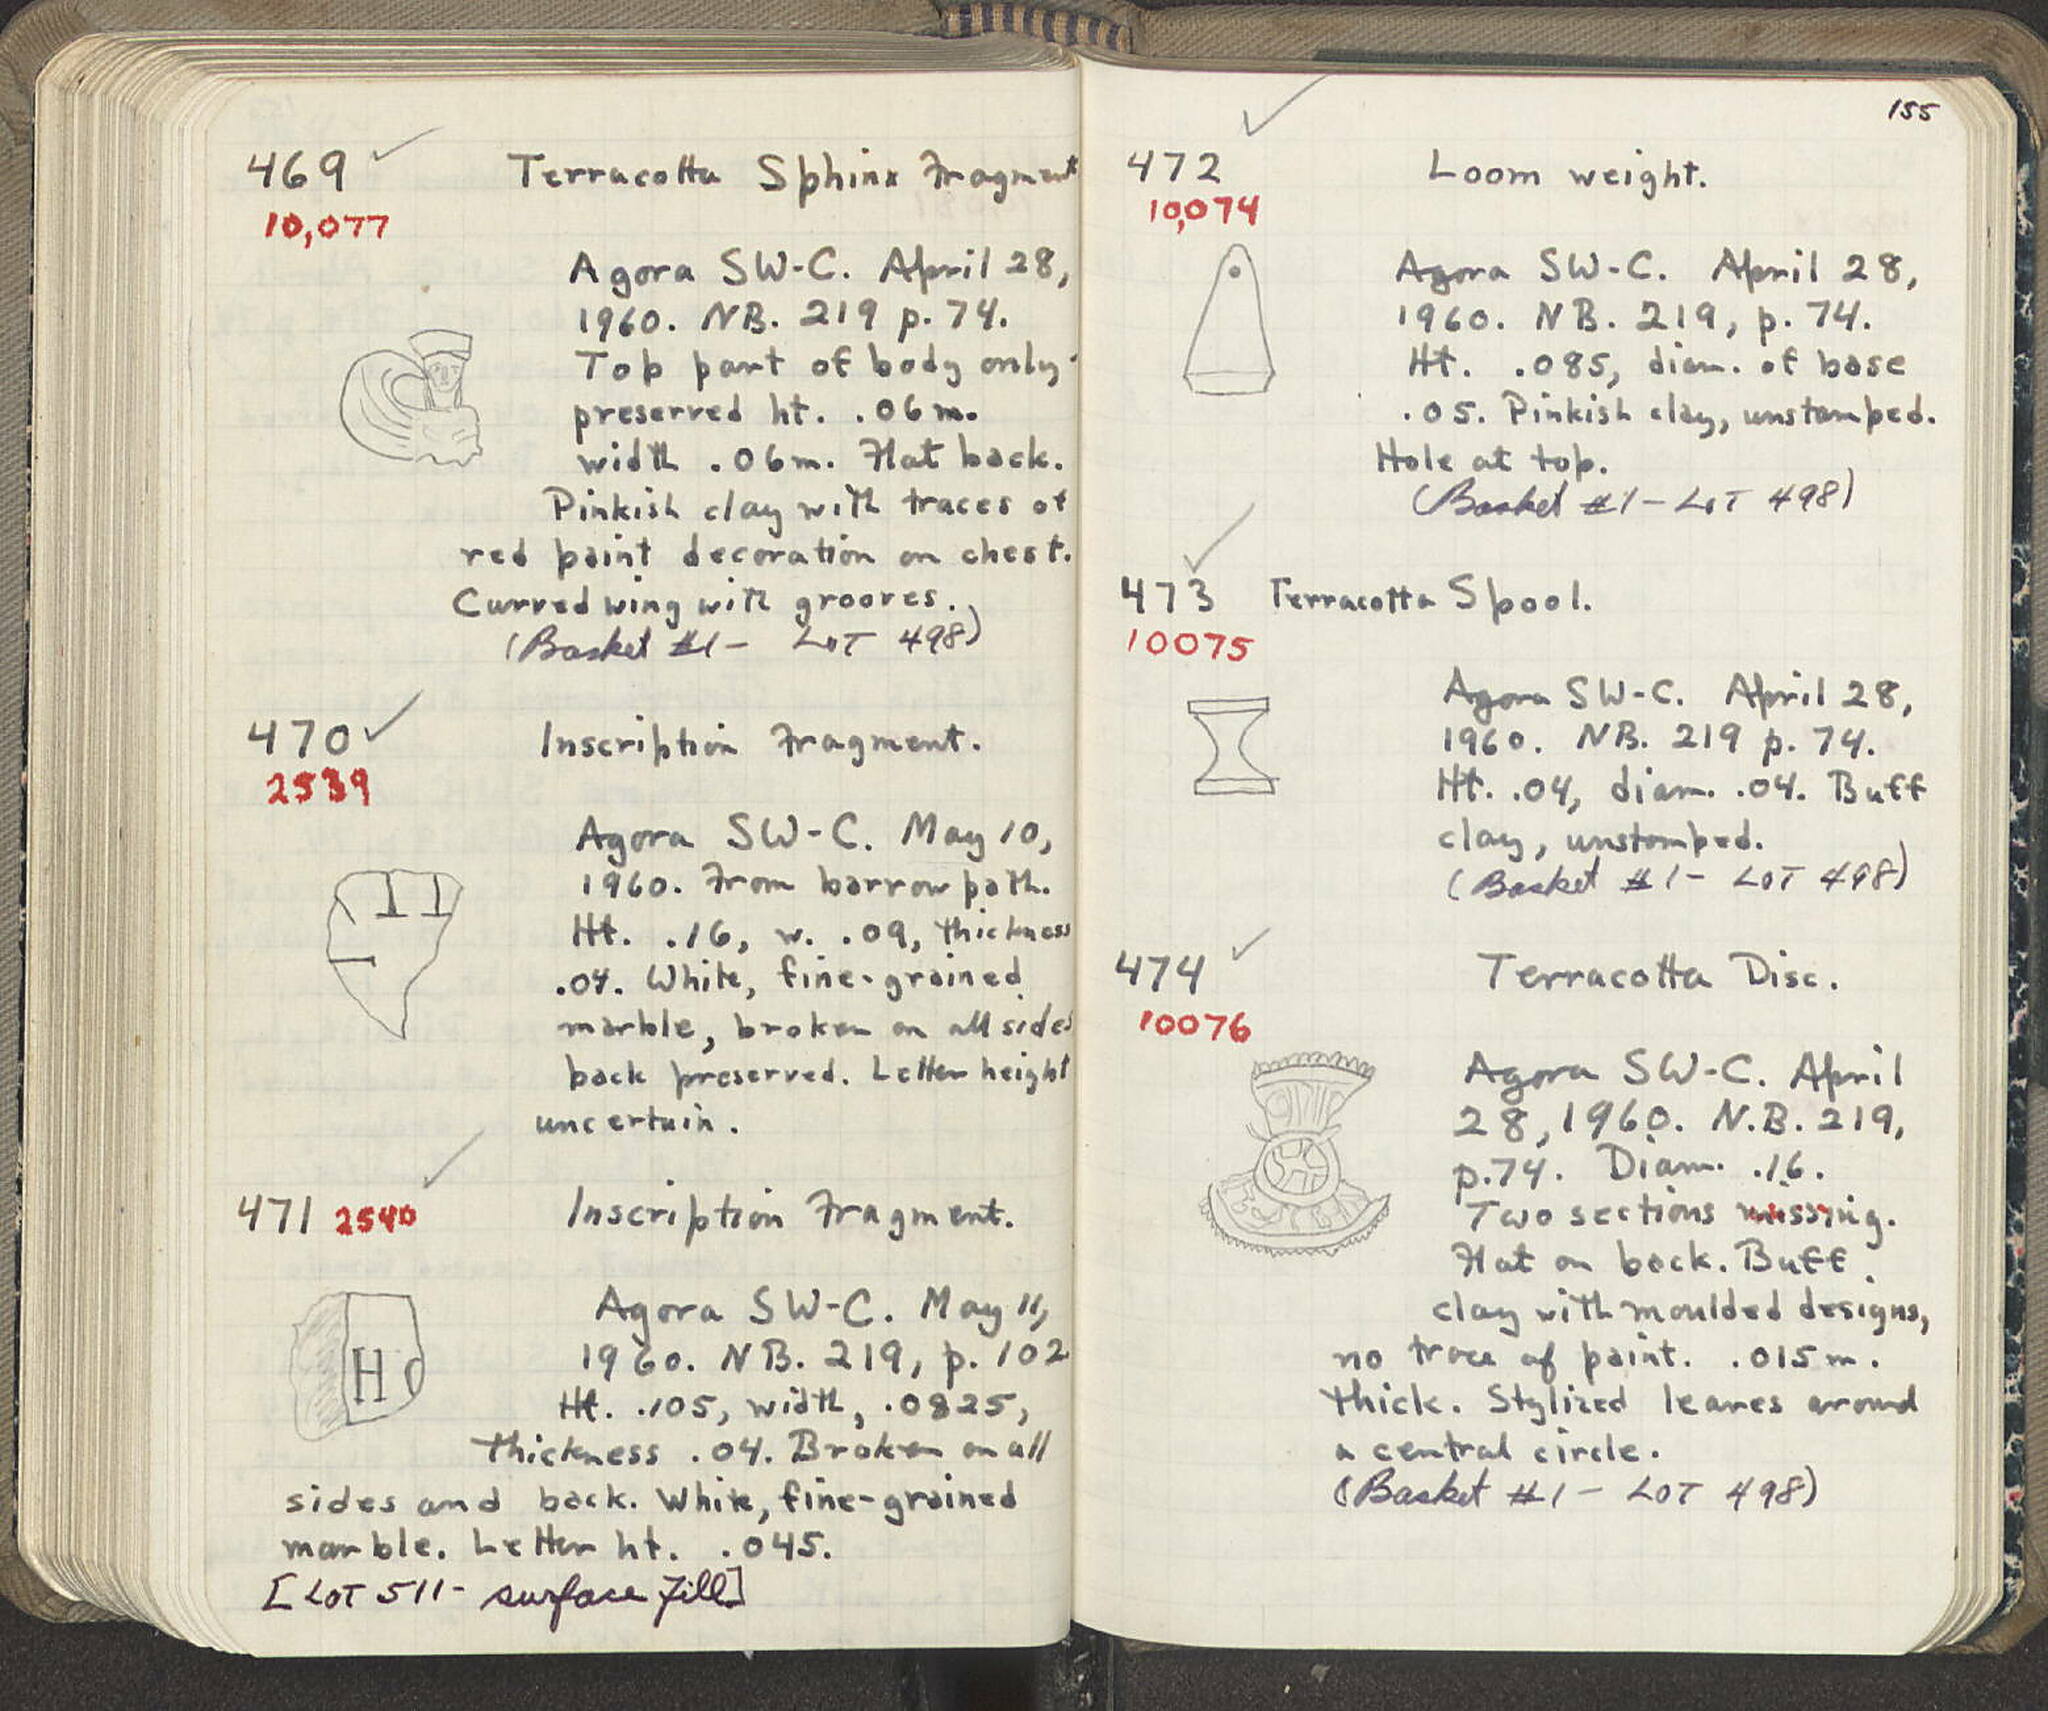 469 Terracotta Sphinx Fragment
10,077
Agora SW-C. April 28,
1960. NB. 219 p. 74.
Top part of body only
preserved ht. .06m.
width .06m. Flat back.
Pinkish clay with traces of
red paint decoration on chest.
Curved wing with grooves.
(Basket #1- LOT 498)
470 Inscription Fragment.
2539
Agora SW-C. May 10,
1960. From barrow path.
Ht. .16, w. .09, thickness
.04. White, fine-grained
marble, broken on all sides
back preserved. Letter height
uncertain.
471 2540 Inscription Fragment.
Agora SW-C. May 11,
1960. NB. 219, p. 102
H
Ht. .105, width, .0825,
thickness .04. Broken on all
sides and back. White, fine-grained
marble. Letter ht. .045.
[LOT 511- surface fill]
155
472 Loom weight.
10,074
Agora SW-C. April 28,
1960. NB. 219, p. 74.
Ht. .085, diam. of base
.05. Pinkish clay, unstamped.
Hole at top.
(Basket #1- LOT 498)
473 Terracotta Spool.
10075
Agora SW-C. April 28,
1960. NB. 219 p. 74.
Ht. .04, diam. .04. Buff
clay, unstamped.
(Basket #1- LOT 498)
474 Terracotta Disc.
10076
Agora SW-C. April
28, 1960. N.B. 219,
p. 74. Diam. .16.
Two sections missing.
Flat on back. Buff
clay with moulded designs,
no trace of paint. .015m.
thick. Stylized leaves around
a central circle.
(Basket #1- LOT 498)